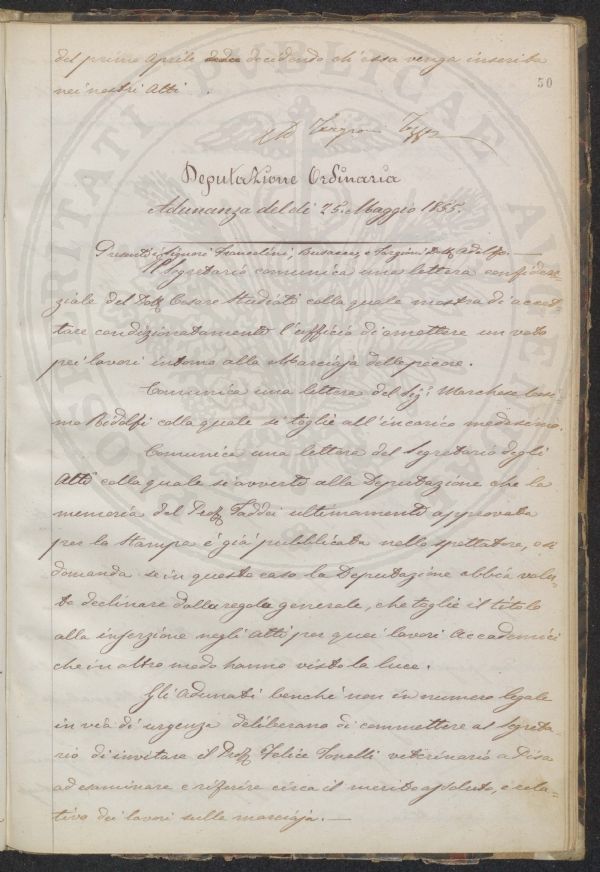 del primo Aprile decidendo ch'essa venga inserita
50
nei nostri Atti.
Deputazione Ordinaria
Adunanza del dì 25. Maggio 1855.
Presenti i Signori Franceschini, Busacca, e Targioni
Il Segretario comunica una lettera confiden-
ziale del Dott. Cesare Studiati colla quale mostra di accet-
tare condizionatamente l'officio di emettere un voto
pei lavori intorno alla Marciaja delle pecore.
Comunica una lettera del Sig.r Marchese Cosi-
mo Ridolfi colla quale si toglie all'incarico medesimo.
Comunica una lettera del Segretario degli
Atti colla quale s'avverte alla Deputazione che la
memoria del Prof. Taddei ultimamente approvata
per la stampa è già pubblicata nello spettatore, e si
domanda se in questo caso la Deputazione abbia volu-
to declinare dalla regola generale, che toglie il titolo
alla inserzione negli Atti per quei lavori Accademici
che in altro modo hanno visto la luce.
Gli Adunati benchè non in numero legale
in via di urgenza deliberano di commettere al Segreta-
rio di invitare il Prof. Felice Tonelli veterinario a Pisa
ad esaminare e riferire circa il merito assoluto, e rela-
tivo dei lavori sulla marciaja.
PROSPERITATI PUBLICAE AUGENDAE